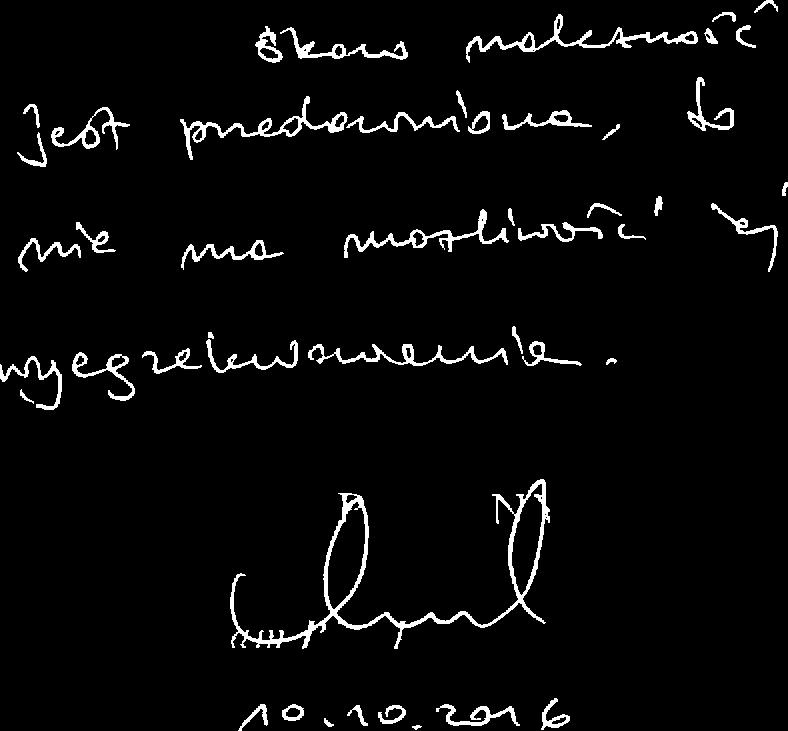 skoro należność
jest przedawniona, to
nie ma możliwość jej
wyegzekwowania.
10.10.2016